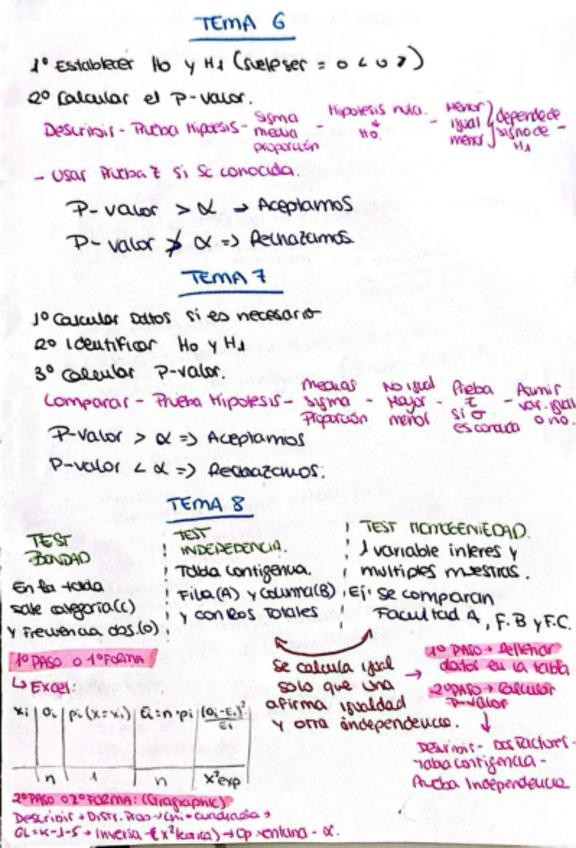 TEMA 6
1º Establecer H0 y H1 (suele ser = o < o >)
2º Calcular el P-valor.
Describir - Prueba Hipótesis - sigma media proporción - Hipótesis nula. ↓ H0. - Menor igual menor } depende de signo de H1 -
- Usar Prueba Z si σ conocida.
P-valor > α → Aceptamos
P-valor ≯ α => Rechazamos
TEMA 7
1º Calcular Datos si es necesario
2º Identificar H0 y H1
3º Calcular P-valor.
Comparar - Prueba Hipotesis - medias sigma Proporción - No igual Mayor menor - Preba z si σ es conocida - Asumir var. igual o no.
P-valor > α => Aceptamos
P-valor < α => Rechazamos.
TEMA 8
TEST BONDAD
En la tabla
sale categoria (c)
y Frecuencia obs. (o)
TEST INDEPEDENCIA.
Tabla contigencia.
Fila (A) y columna (B)
y con los totales
TEST HOMOGENIEDAD.
1 variable interes y
multiples muestras.
Ej: se comparan
Facultad A, F.B y F.C.
1º PASO o 1ª FORMA
↳ Excel
xi | Oi | pi (x=xi) | Ei=n·pi | (Oi-Ei)²/Ei
n | 1 | n | x²exp
se calcula igual
solo que una
afirma igualdad
y otra independencia.
→ 1º PASO → Rellenar
datos en la tabla
2º PASO → Calcular
P-valor
↓
Describir - Dos Factores -
Tabla contigencia -
Prueba Independencia
2º PASO o 2ª FORMA: (Statgraphic)
Describir → Distr. Prob → Chi-cuadrado →
GL = K-1-S → Inversa → Op ventana - α.